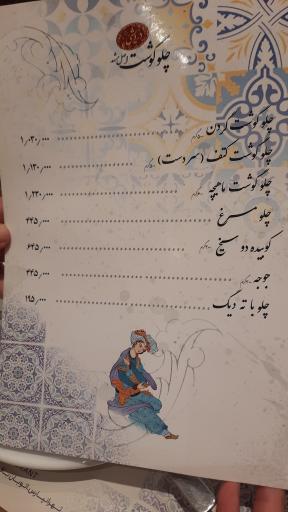 چلوگوشت
چلو گوشت گردن ۱٫۰۳۰٫۰۰۰
چلو گوشت کتف (سردست) ۱٫۱۳۰٫۰۰۰
چلو گوشت ماهیچه ۱٫۲۳۰٫۰۰۰
چلو مرغ ۴۴۵٫۰۰۰
کوبیده دو سیخ ۶۴۵٫۰۰۰
جوجه ۴۴۵٫۰۰۰
چلو با ته دیگ ۱۹۵٫۰۰۰